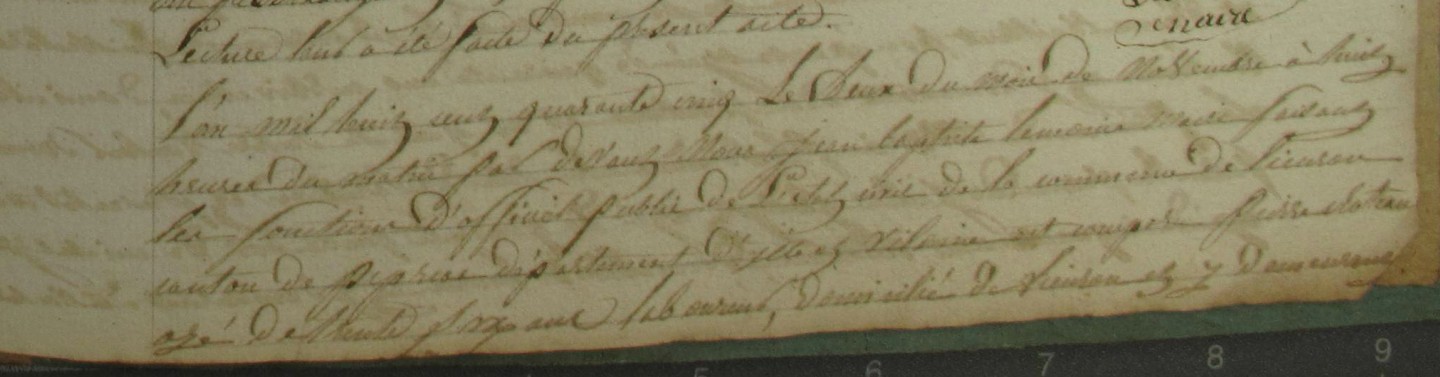 Maire
Lecture leur a été faite du présent acte.
L'an mil huit cent quarante cinq Le Deux du mois de Novembre à huit
heures du matin par devant Nous jean baptiste lemoine maire faisant
les fonctions d'officier public de l'Etat civil de la commune de Lieuron
canton de pipriac département d'ille et Vilaine est comparu pierre
agé de trente ans laboureur, domicilié de Lieuron et y demeurant